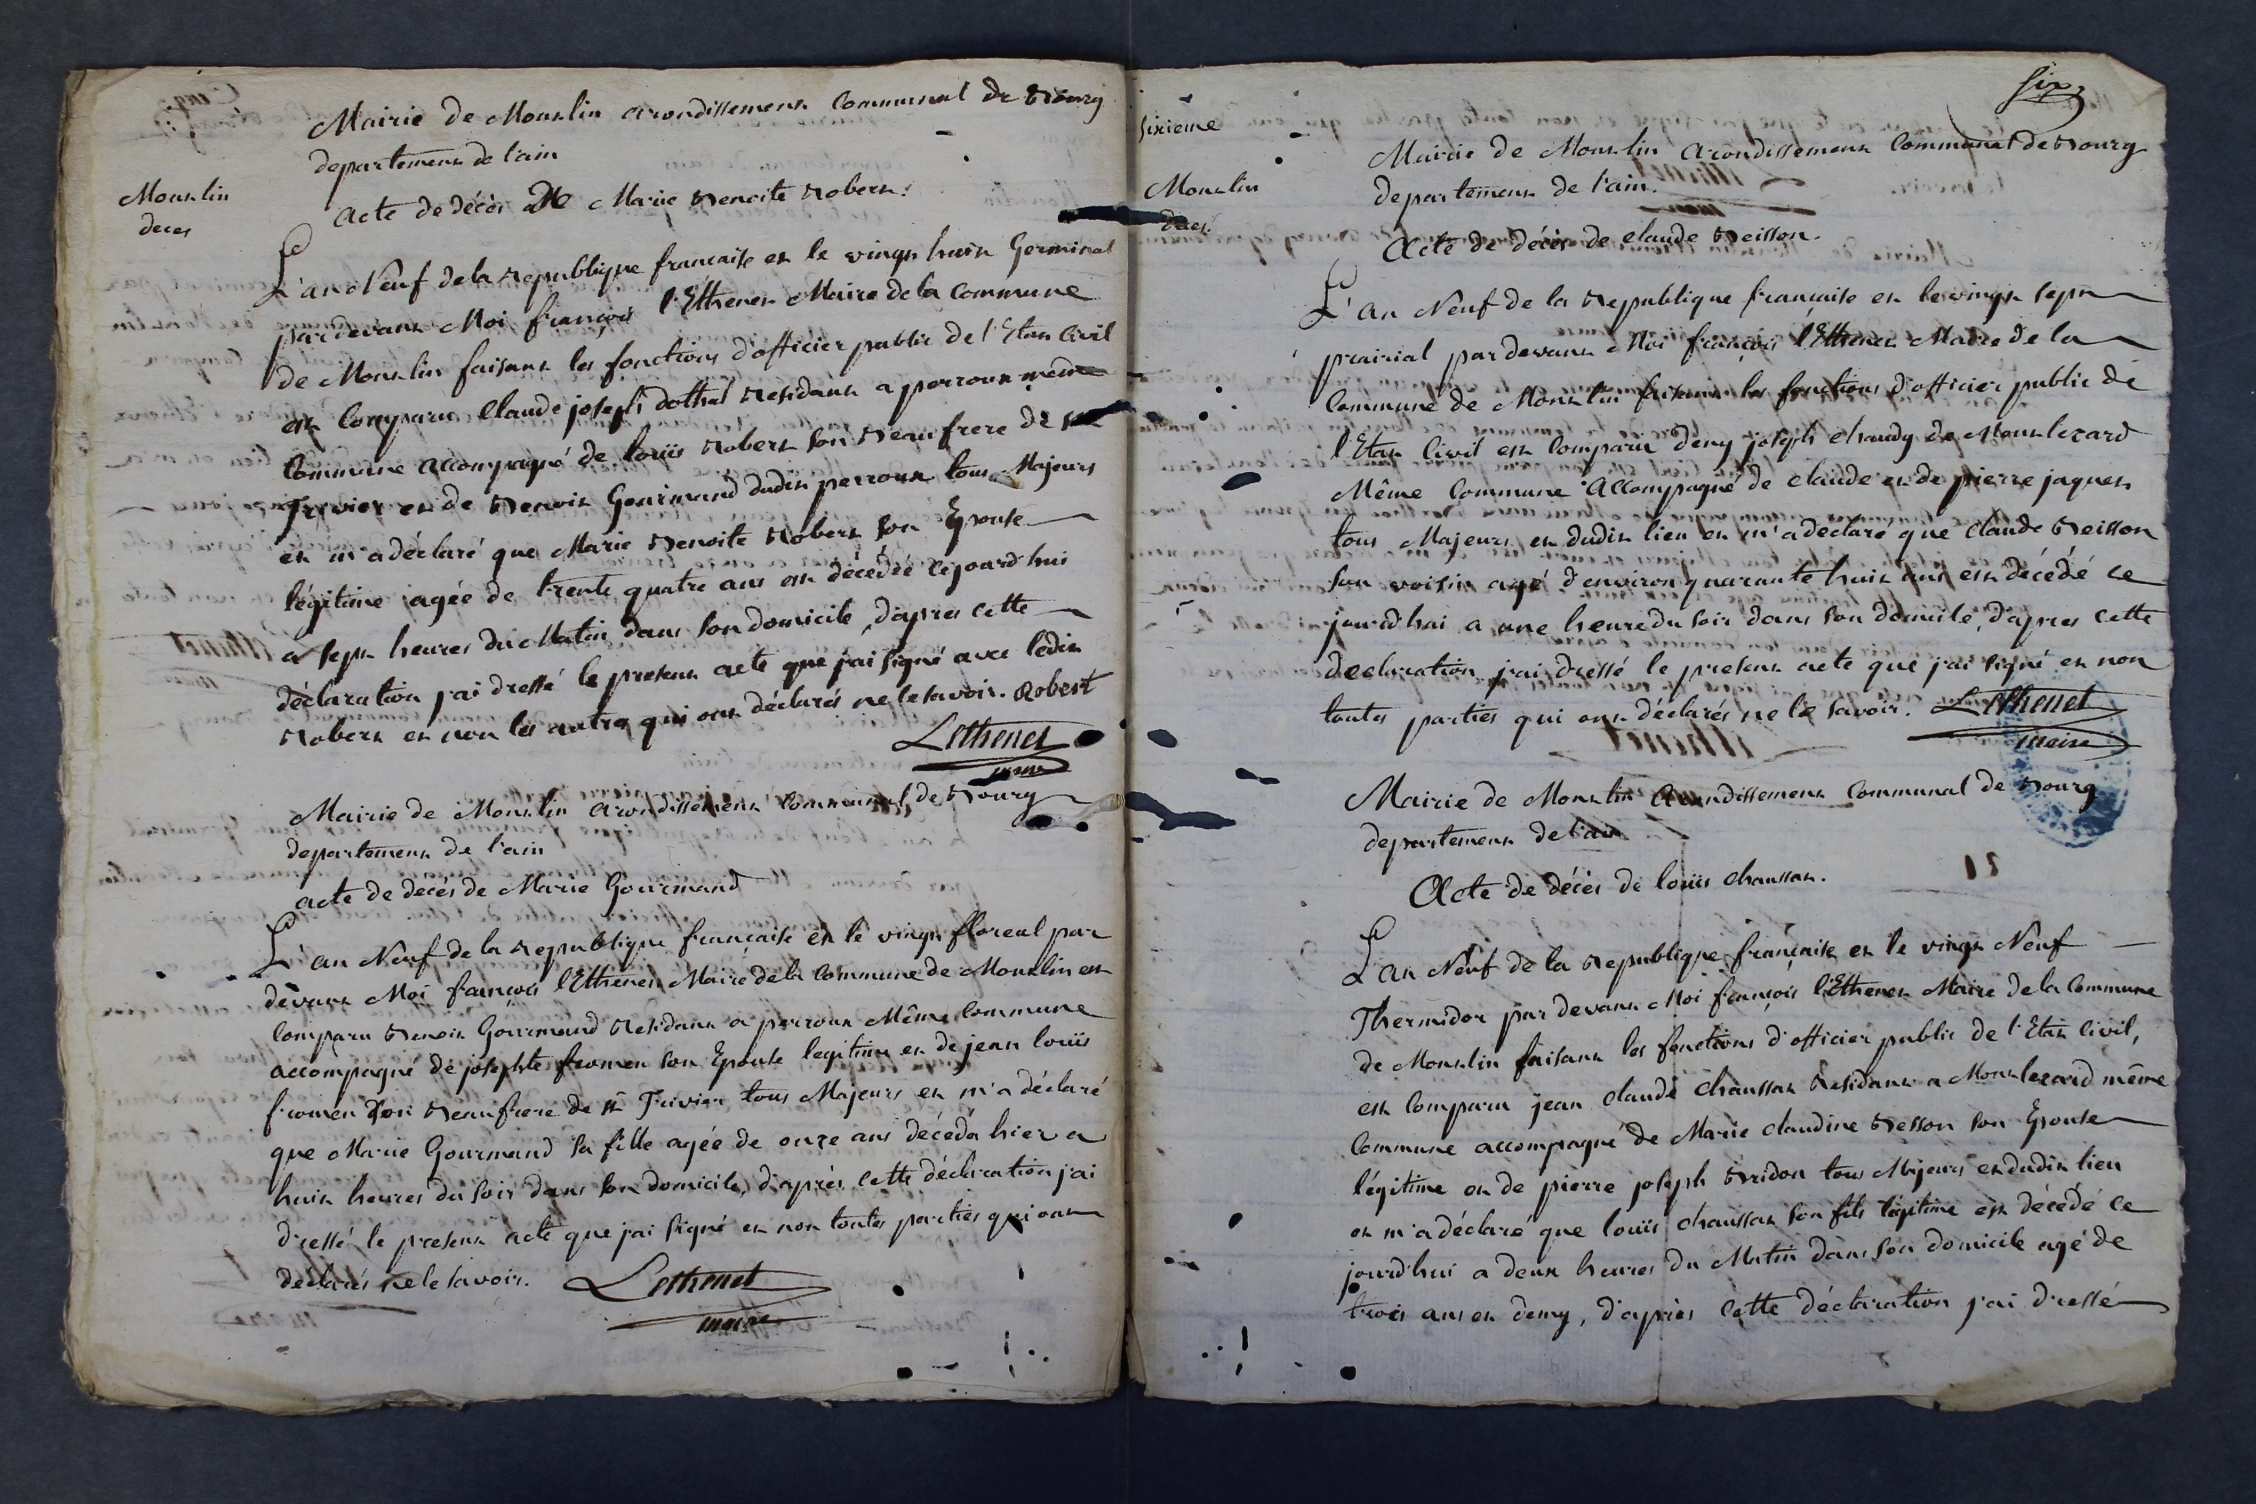 Mairie de Montlin arondissement Communal de Bourg
departement de l'ain
Montlin
deces
Acte de décès De Marie Benoite Robert.
L'an Neuf de la Republique francaise et le vingt huit Germinal
pardevant Moi françois l'Ethenet Maire de la Commune
de Montlin faisant les fonctions d'officier public de l'Etat Civil
est Comparu Claude joseph dothal Residant a perroux même
Commune accompagné de loüis Robert son Beaufrere de st
Trivier et de Benoit Gourmand dudit perroux tous Majeurs
et m'a déclaré que Marie Benoite Robert son Epouse
légitime agée de trente quatre ans est décédée cejourd'hui
a sept heures du Matin dans son domicile, d'apres cette
déclaration j'ai dressé le present acte que j'ai signé avec ledit
Robert et non les autres qui ont déclarés ne le savoir. Robert
Lethenet
maire
Mairie de Montlin Arondissement Communal de Bourg
departement de l'ain
acte de decés de Marie Gourmand
L'an Neuf de la Republique francaise et le vingt floreal par
devant Moi françois l'Ethenet Maire de la Commune de Montlin est
Comparu Benoit Gourmand Residant a perroux Même Commune
accompagné de josephte fromen son Epouse legitime et de jean loüis
fromen son Beaufrere de st Trivier tous Majeurs et m'a déclaré
que Marie Gourmand sa fille agée de onze ans décéda hier a
huit heures du soir dans son domicile, d'après cette déclaration j'ai
dressé le present acte que j'ai signé et non toutes parties qui ont
déclarés ne le savoir. Lethenet
maire
six
sixieme
Mairie de Montlin Arondissement Communal de Bourg
departement de l'ain.
Montlin
deces
Acte de décès de claude Beisson.
L'an Neuf de la Republique francaise et le vingt sept
prairial pardevant Moi françois l'Ethenet Maire de la
Commune de Montlin faisant les fonctions d'officier public de
l'Etat Civil est Comparu deny joseph chaudy de Montlezard
Même Commune Accompagné de claude et de pierre jaquet
tous Majeurs et dudit lieu et m'a déclaré que claude Beisson
son voisin agé d'environ quarante huit ans est décédé ce
jourd'hui a une heure du soir dans son domicile, d'apres cette
declaration j'ai dressé le present acte que j'ai signé et non
toutes parties qui ont déclarés ne le savoir. Lethenet
maire
Mairie de Montlin Arondissement Communal de Bourg
departement de l'ain
Acte de décès de loüis chaussat.
L'an Neuf de la Republique française et le vingt Neuf
Thermidor pardevant Moi françois l'Ethenet Maire de la Commune
de Montlin faisant les fonctions d'officier public de l'Etat Civil,
est Comparu jean claude chaussat Residant a Montlezard même
Commune accompagné de Marie claudine Besson son Epouse
légitime et de pierre joseph Bridon tous Majeurs et dudit lieu
et m'a déclaré que loüis chaussat son fils légitime est décédé ce
jourd'hui a deux heures du Matin dans son domicile agé de
trois ans et demy, d'après cette déclaration j'ai dressé